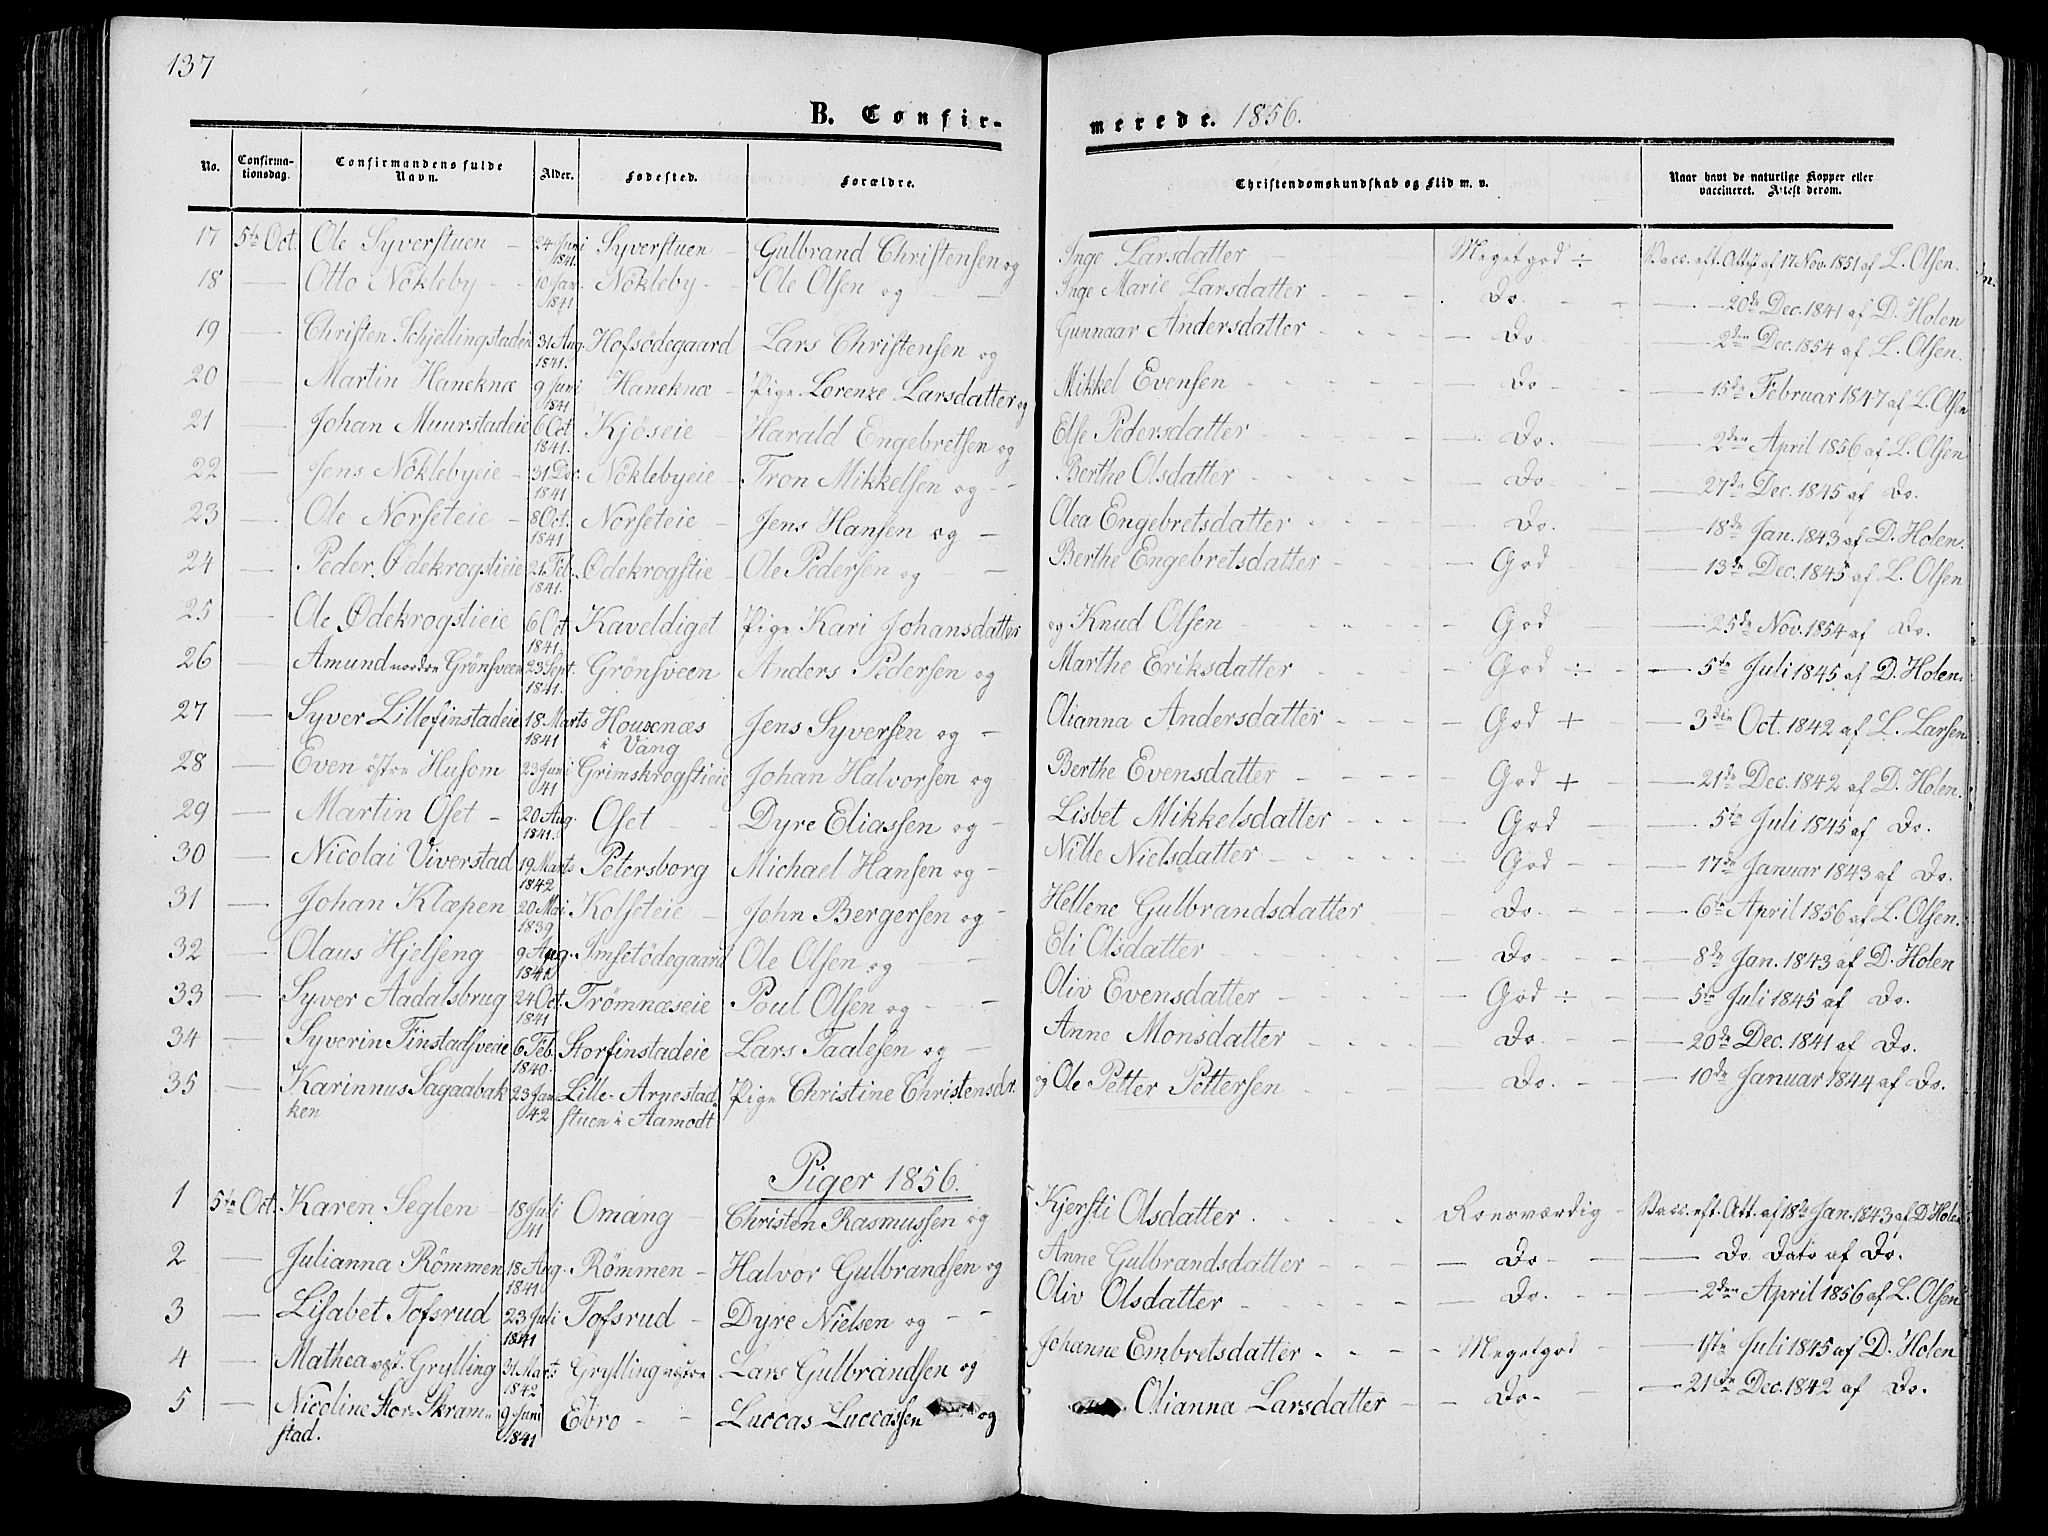 137
B. Confir-
merede. 1856.
No.
Confirma-
tionsdag.
Confirmandens fulde
Navn.
Alder.
Fødested.
Forældre.
Christendomskundskab og Flid m. v.
Naar havt de naturlige Kopper eller
vaccineret. Attest derom.
17 5te Oct. Ole Syverstuen - 24 Juni 1841. Syverstuen - Gulbrand Christensen og Inge Larsdatter - Megetgod ÷ Vacc. eft. Att. af 17 Nov. 1851 af L. Olsen.
18 — Otto Nökleby - 10 Jan. 1841 Nökleby - Ole Olsen og - Inge Marie Larsdatter - Do. - 20de Dec. 1841 af D. Holen
19 — Christen Schjellingstadeie 31 Aug. 1841. Hofsödegaard Lars Christensen og Gunnaar Andersdatter - Do - 2den Dec. 1854 af L. Olsen.
20 — Martin Haneknæ 9 Juni 1841 Haneknæ - Pige Lorenze Larsdatter og Mikkel Evensen - Do - 15de Februar 1847 af L. Olsen
21 — Johan Muurstadeie 6 Oct 1841. Kjöseie - Harald Engebretsen og Else Pedersdatter - Do. - 2den April 1856 af L. Olsen
22 — Jens Nöklebyeie - 31 Dec. 1841 Nöklebyeie - Tron Mikkelsen og - Berthe Olsdatter - Do - 27de Dec. 1845 af Do.
23 — Ole Norseteie - 8 Oct. 1841 Norseteie - Jens Hansen og - Olea Engebretsdatter - Do. - 18de Jan. 1843 af D. Holen.
24 — Peder Ødekrogstieie 21 Feb. 1841. Ødekrogstie - Ole Pedersen og - Berthe Engebretsdatter - God - 13de Dec. 1845 af L. Olsen
25 — Ole Ødekrogstieie 6 Oct 1841. Kaveldiget Pige Kari Johansdatter og Knud Olsen - God - 25de Nov. 1854 af Do.
26 — Amund nordre Grönsveen 23 Sept. 1841. Grönsveen Anders Pedersen og Marthe Eriksdatter - God ÷ - 5te Juli 1845 af D. Holen.
27 — Syver Lillefinstadeie 18 Marts 1841 Housenæs i Vang Jens Syversen og - Olianna Andersdatter - God + - 3die Oct. 1842 af L. Larsen
28 — Even östre Husom 23 Juni 41 Grimskrogstieie Johan Halvorsen og Berthe Evensdatter - God + - 21de Dec. 1842 af D. Holen.
29 — Martin Oset - 20 Aug. 1841. Oset - Dyre Eliassen og - Lisbet Mikkelsdatter - God - 5te Juli 1845 af Do.
30 — Nicolai Viverstad 19 Marts 1842 Petersborg Michael Hansen og - Nille Nielsdatter - God - 17de Januar 1843 af Do.
31 — Johan Klæpen 20 Mai 1839 Kolseteie - John Bergersen og - Hellene Gulbrandsdatter - Do - 6te April 1856 af L. Olsen.
32 — Olaus Hjelseng 9 Aug. 1841 Imsetödegaard Ole Olsen og - Eli Olsdatter - Do - 8de Jan. 1843 af D. Holen
33 — Syver Aadalsbrug 24 Oct. 1841 Trömnæseie Poul Olsen og - Oliv Evensdatter - God ÷ - 5te Juli 1845 af Do.
34 — Syverin Finstadsveie 6 Feb. 1840 Storfinstadeie Lars Taalesen og - Anne Monsdatter - Do. - 20de Dec. 1841 af Do.
35 — Karinnus Sagaabakken 23 Jan 42 Lille-Arnestadstuen i Aamodt Pige Christine Christensdr. og Ole Petter Pettersen - Do. - 10de Januar 1844 af Do.
Piger 1856.
1 5te Oct. Karen Seglen - 18 Juli 41 Omang - Christen Rasmussen og Kjersti Olsdatter - Roesværdig - Vacc. eft. Att. af 18de Jan. 1843 af D. Holen
2 — Julianna Römmen 18 Aug. 1841 Römmen - Halvor Gulbrandsen og Anne Gulbrandsdatter - Do - Do. Dato af Do.
3 — Lisabet Tofsrud 23 Juli 1841 Tofsrud - Dyre Nielsen og - Oliv Olsdatter - Do. - 2den April 1856 af L. Olsen
4 — Mathea vest. Grylling 31 Marts 1842 Grylling vestre Lars Gulbrandsen og Johanne Embretsdatter - Megetgod - 1ste Juli 1845 af D. Holen
5 — Nicoline Stor-Skramstad. 9 Juni 1841 Ebro - Luccas Luccassen og Olianna Larsdatter - Do - 21de Dec. 1842 af Do.